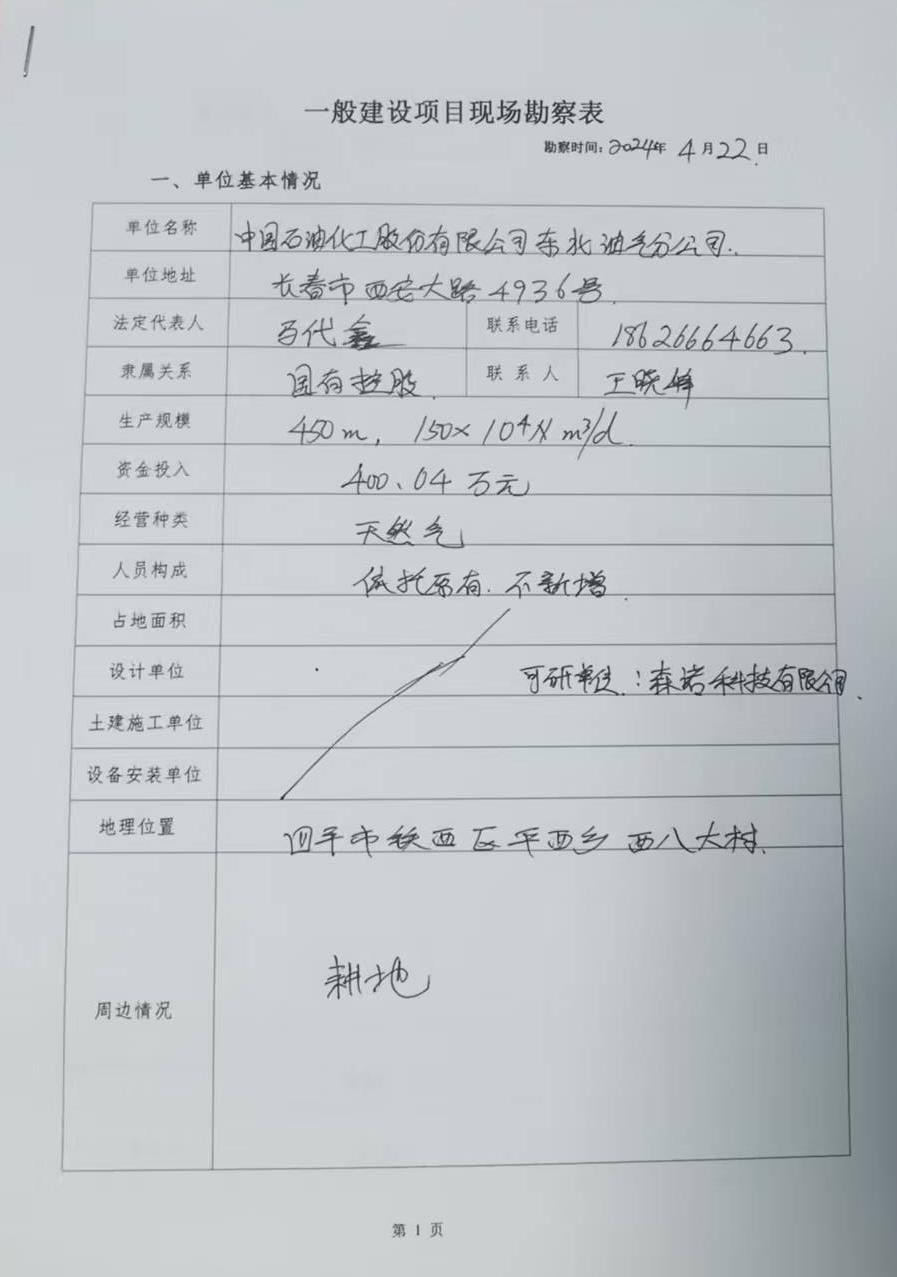 一般建设项目现场勘察表
勘察时间：2024年 4月22日
一、单位基本情况
单位名称 中国石油化工股份有限公司东北油气分公司.
单位地址 长春市西安大路4936号.
法定代表人 马代鑫 联系电话 18626664663.
隶属关系 国有控股. 联系人 王晓锋
生产规模 450m, 150×10⁴N m³/d.
资金投入 400.04万元
经营种类 天然气
人员构成 依托原有.不新增.
占地面积
设计单位 可研单位：森诺科技有限公司.
土建施工单位
设备安装单位
地理位置 四平市铁西区平西乡西八大村.
周边情况 耕地
第 1 页